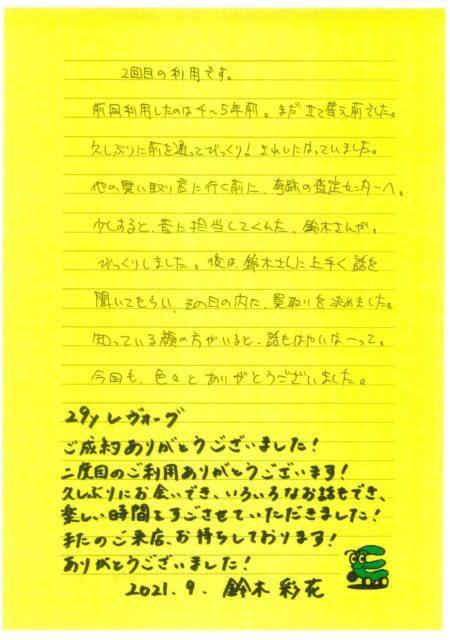 2回目の利用です。
前回利用したのは4〜5年前。まだ立て替え前でした。
久しぶりに前を通ってびっくり！きれいになっていました。
他の買い取り店に行く前に、奇跡の査定センターへ。
少しすると、昔に担当してくれた、鈴木さんが。
びっくりしました。後は、鈴木さんに上手く話を
聞いてもらい、その日の内に、買取りを決めました。
知っている顔の方がいると、話もはやいな〜って。
今回も、色々とありがとうございました。
29y レヴォーグ
ご成約ありがとうございました！
二度目のご利用ありがとうございます！
久しぶりにお会いでき、いろいろなお話もでき、
楽しい時間をすごさせていただきました！
またのご来店、お待ちしております！
ありがとうございました！
2021.9. 鈴木 彩花